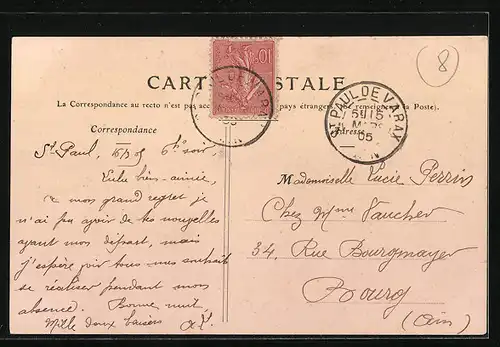 8
10
CARTE POSTALE
La Correspondance au recto n'est pas acc pays étrangers. (Se renseigner à la Poste).
ST PAUL DE VARAX
5 15
MARS
05
AIN
Correspondance
Adresse
St Paul, 16/3 05 6h soir
Lulu bien-aimée,
à mon grand regret je
n'ai pu avoir de tes nouvelles
ayant mon départ, mais
j'espère voir tous mes souhaits
se réaliser pendant mon
absence. Bonne nuit,
Mille doux baisers
Mademoiselle Lucie Perrin
Chez Mme Vaucher
34, Rue Bourgmayer
Bourg
(Ain)